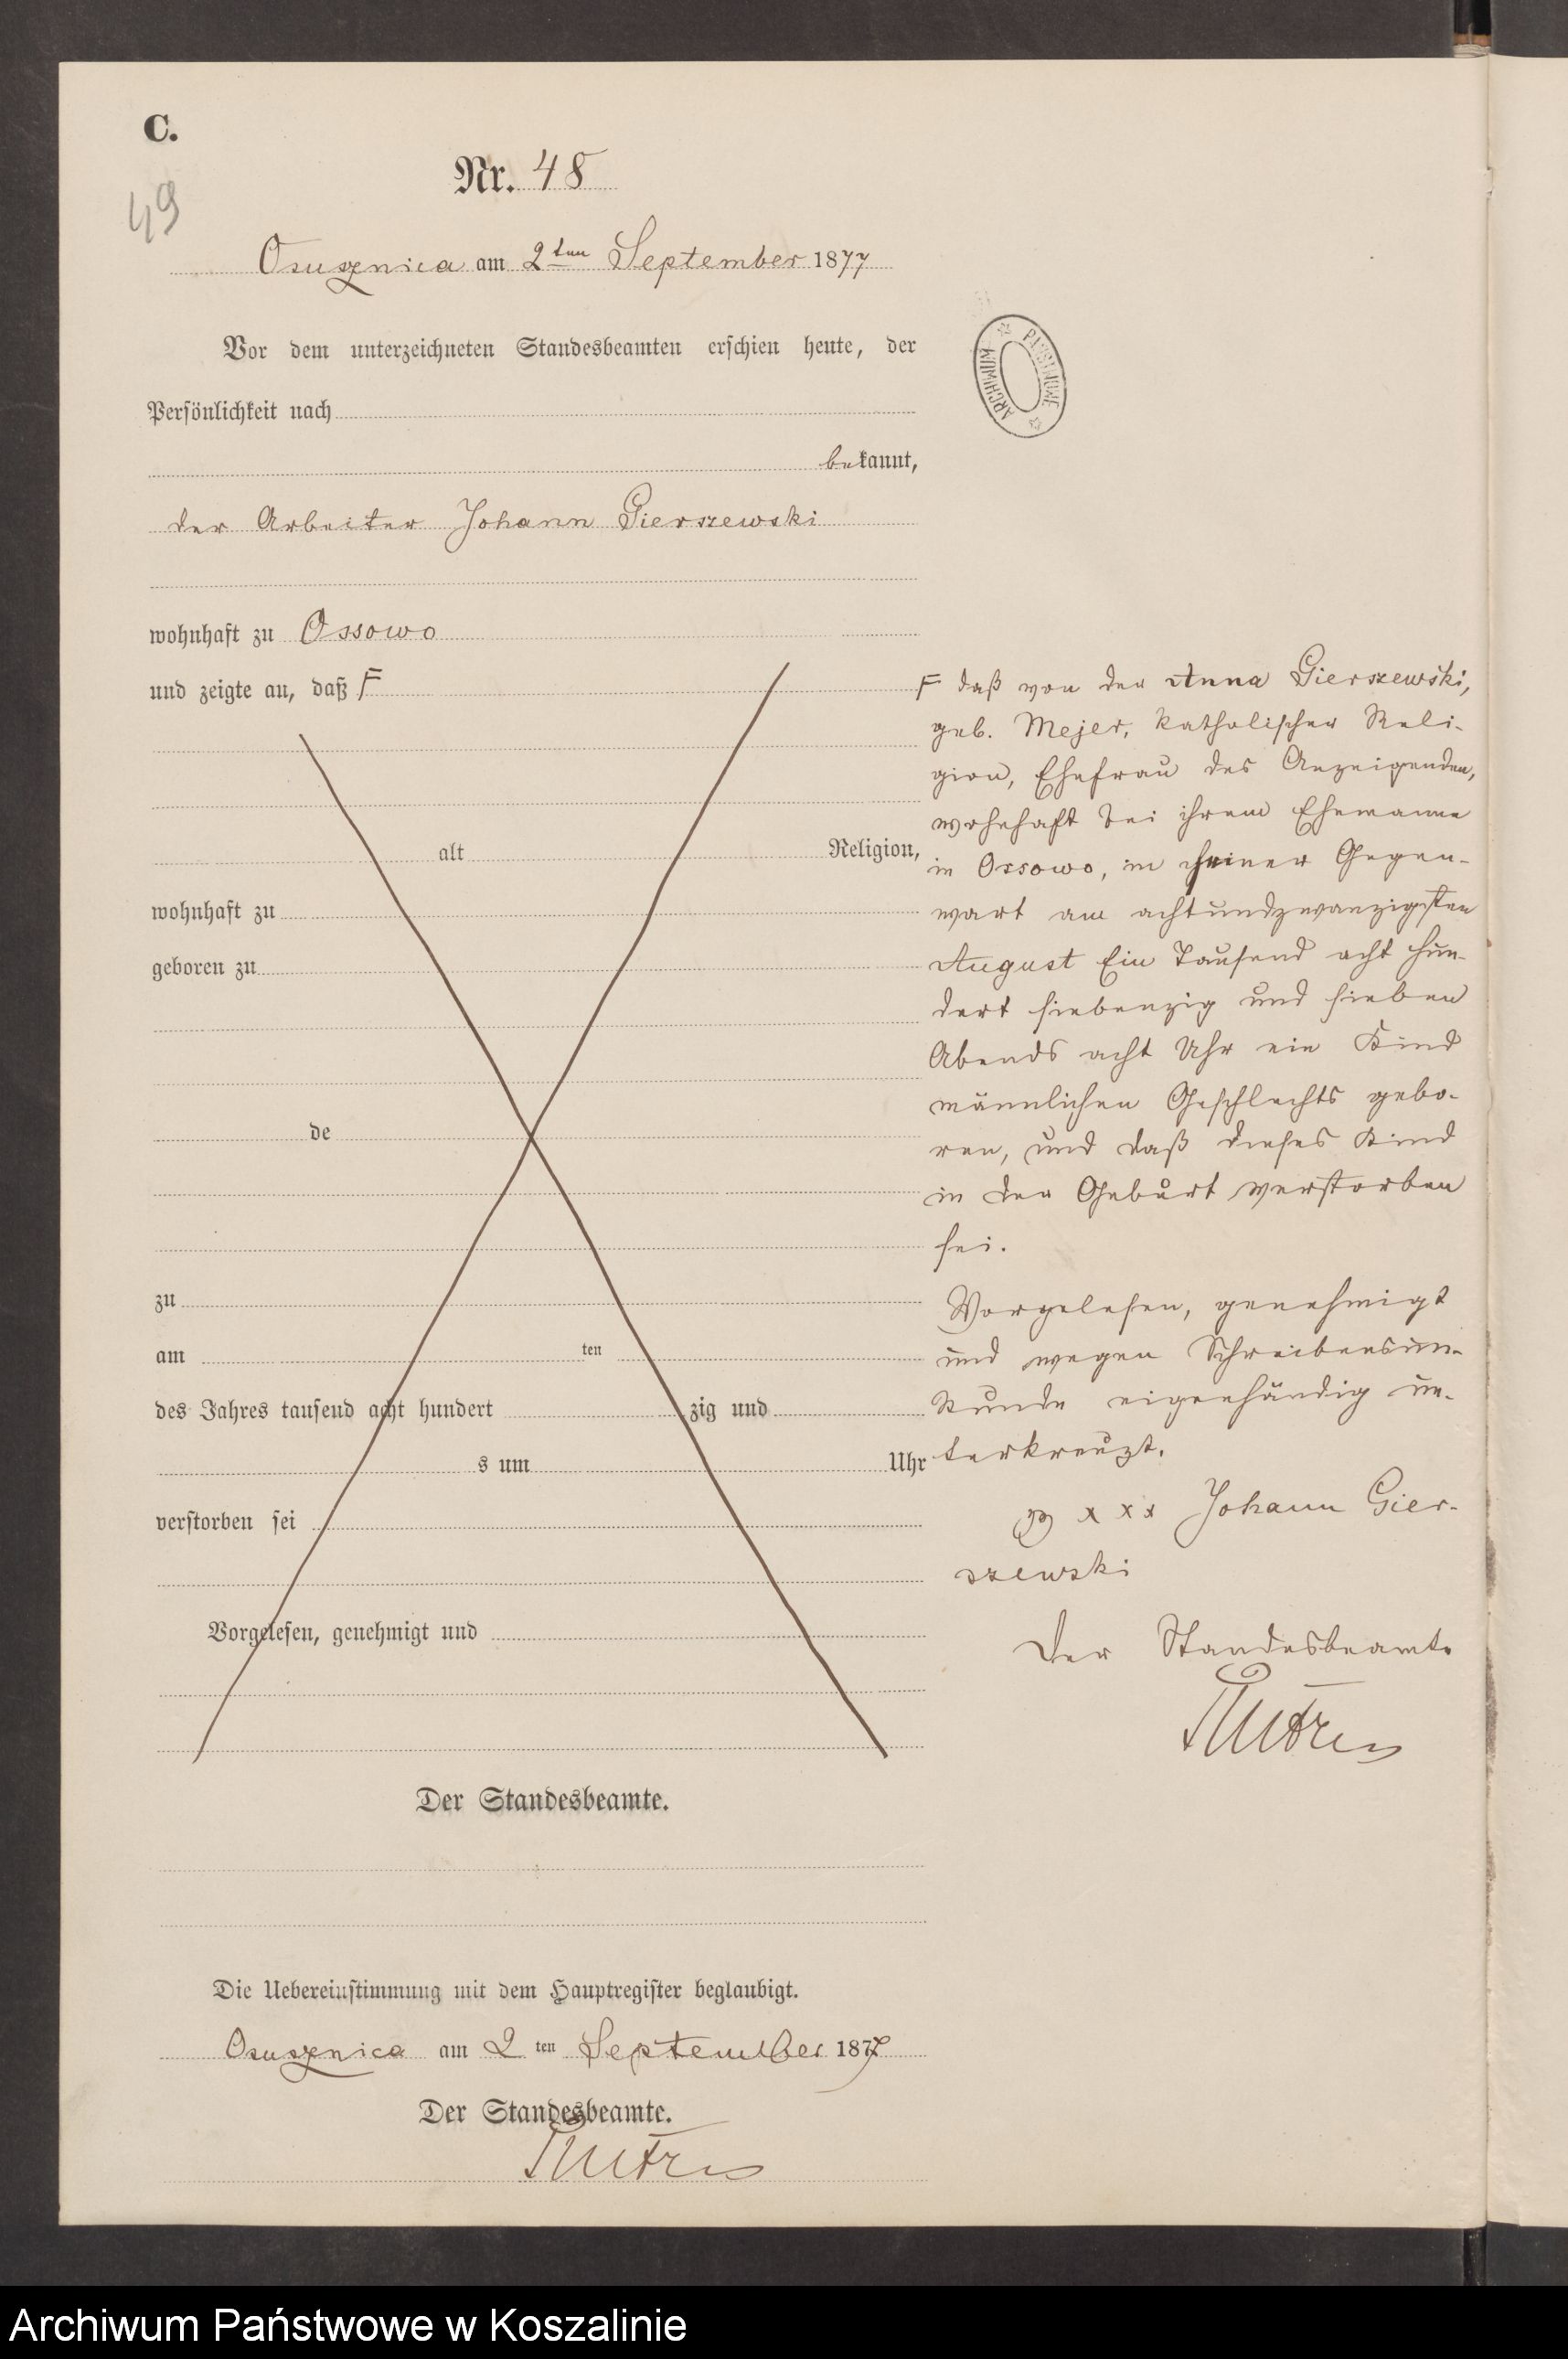 C.
49
Nr. 48
Osusznica am 2ten September 1877
Vor dem unterzeichneten Standesbeamten erschien heute, der
Persönlichkeit nach
bekannt,
der Arbeiter Johann Gierszewski
wohnhaft zu Ossowo
und zeigte an, daß F
alt Religion,
wohnhaft zu
geboren zu
de
zu
am ten
des Jahres tausend acht hundert zig und
s um Uhr
verstorben sei
Vorgelesen, genehmigt und
Der Standesbeamte.
Die Uebereinstimmung mit dem Hauptregister beglaubigt.
Osusznica am 2 ten September 1877
Der Standesbeamte.
ARCHIWUM PAŃSTWOWE
F daß von der Anna Gierszewski,
geb. Mejer, katholischer Reli-
gion, Ehefrau des Anzeigenden,
wohnhaft bei ihrem Ehemanne
in Ossowo, in seiner Gegen-
wart am achtundzwanzigsten
August Ein Tausend acht hun-
dert siebenzig und sieben
Abends acht Uhr ein Kind
männlichen Geschlechts gebo-
ren, und daß dieses Kind
in der Geburt verstorben
sei.
Vorgelesen, genehmigt
und wegen Schreibensun-
kunde eigenhändig un-
terkreuzt.
x x x Johann Gier-
szewski
Der Standesbeamte
Archiwum Państwowe w Koszalinie